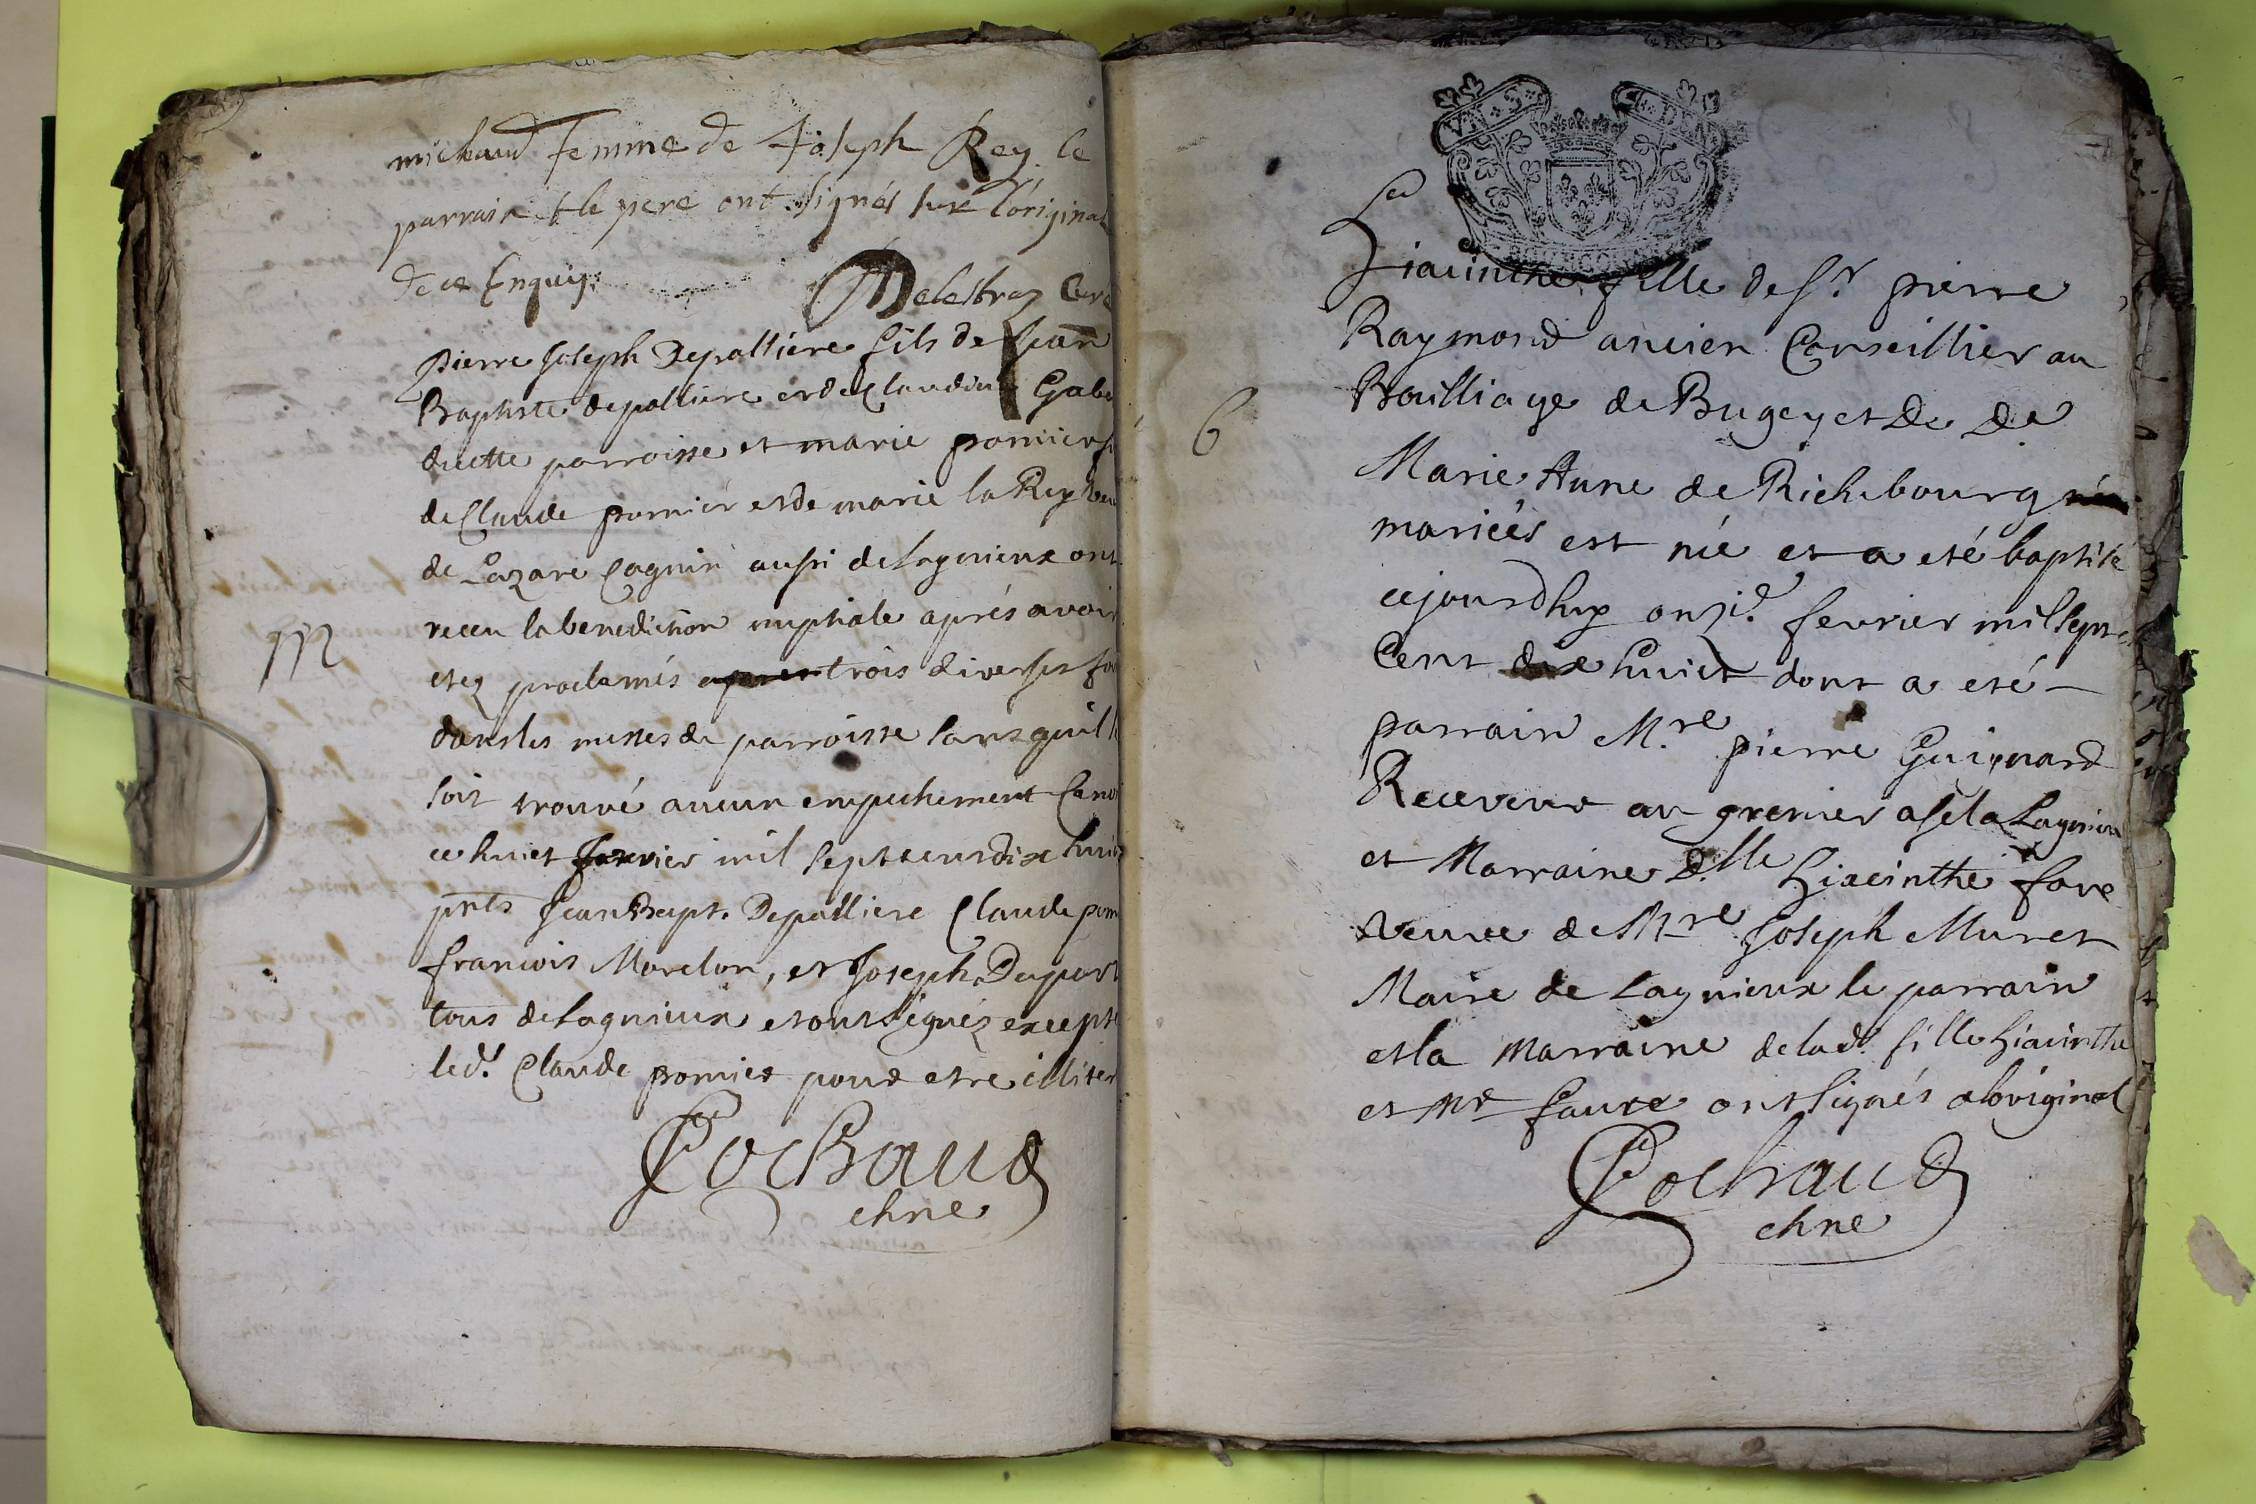 michaud femme de Joseph Rey. le
parrain & le pere ont signés sur l'original
de ce Enquis. Delestraz Curé
pierre Joseph Depalliere fils de Jean
Baptiste depalliere et de Claudine Gabe
de cette parroisse et marie pomier
de Claude pomier et de marie la Rey
de Lazare Cagnin aussi de Lagnieux ont
receu la benediction nuptiale aprés avoir
etez proclamés trois diverses fo
dans les messes de parroisse sans quil
soit trouvé aucun empechement Cano
M
ce huict fevrier mil sept cens dix huict
pnts Jean Bapt. Depalliere Claude pom
francois Morelon, et Joseph Duport
tous de Lagnieux et ont signéz excepté
led. Claude pomier pour etre illiter
Cochaud
chne
6
Hiacinthe fille de Sr. pierre
Raymond ancien Conseillier au
Bailliage de Bugey et De De
Marie Anne de Richebourg
mariés est née et a eté baptisé
cejourdhuy onzie. fevrier mil sept
Cent dix huict dont a eté
parrain M.re pierre Guignard
Receveur au grenier a sel a Lagnieu
et Marraine D.lle Hiacinthe fave
veuve de Mre Joseph Muret
Maire de Lagnieux le parrain
et la marraine de lad. fille hiacinthe
et Mr faure ont signés a l'original
Cochaud
chne